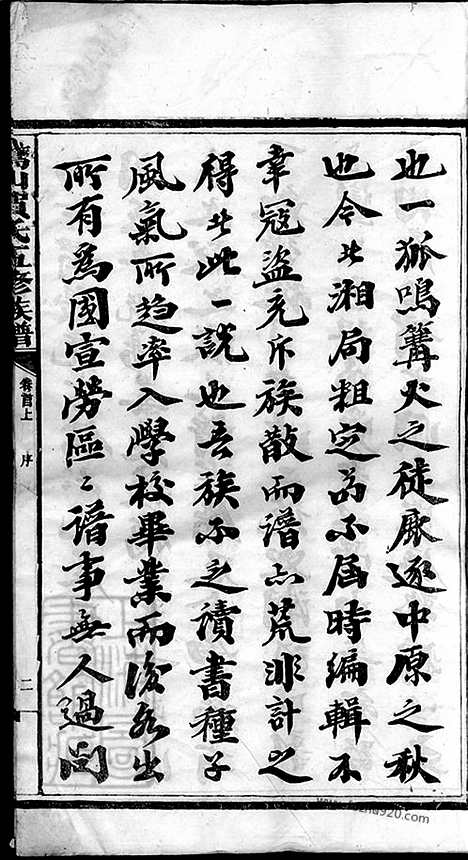 也一狐鳴篝火之徒鹿逐中原之秋
也今者湘局粗定苟不屆時編輯不
幸寇盜充斥族散而譜亦荒非計之
得者此一說也吾族不乏讀書種子
風氣所趨率入學校畢業而後各出
所有為國宣勞區々譜事無人過問
山 氏五修族譜
卷首上 序
二